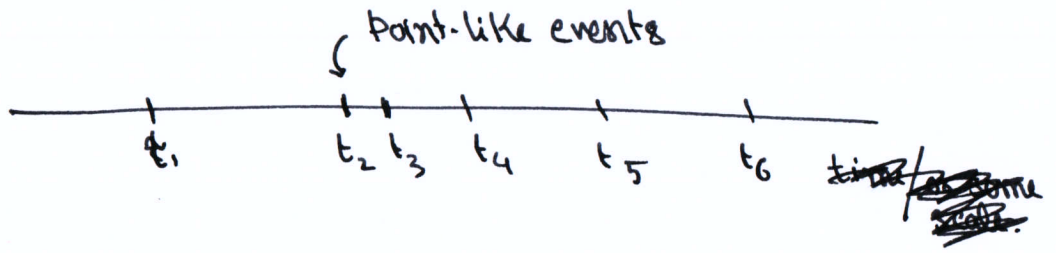 Point-like events
t₁ t₂ t₃ t₄ t₅ t₆